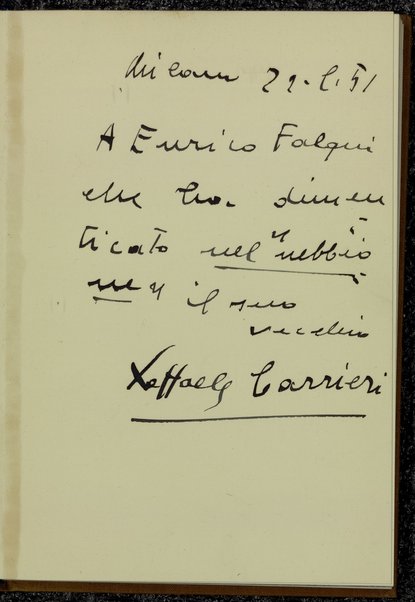 Milano 22-2-51
A Enrico Falqui
che ha dimen
ticato nel "nebbio
ne" il suo
vecchio
Raffaele Carrieri